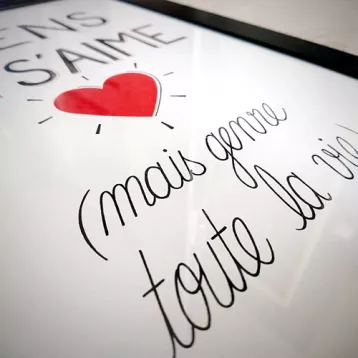 ENS
S'AIME
(mais genre
toute la vie)